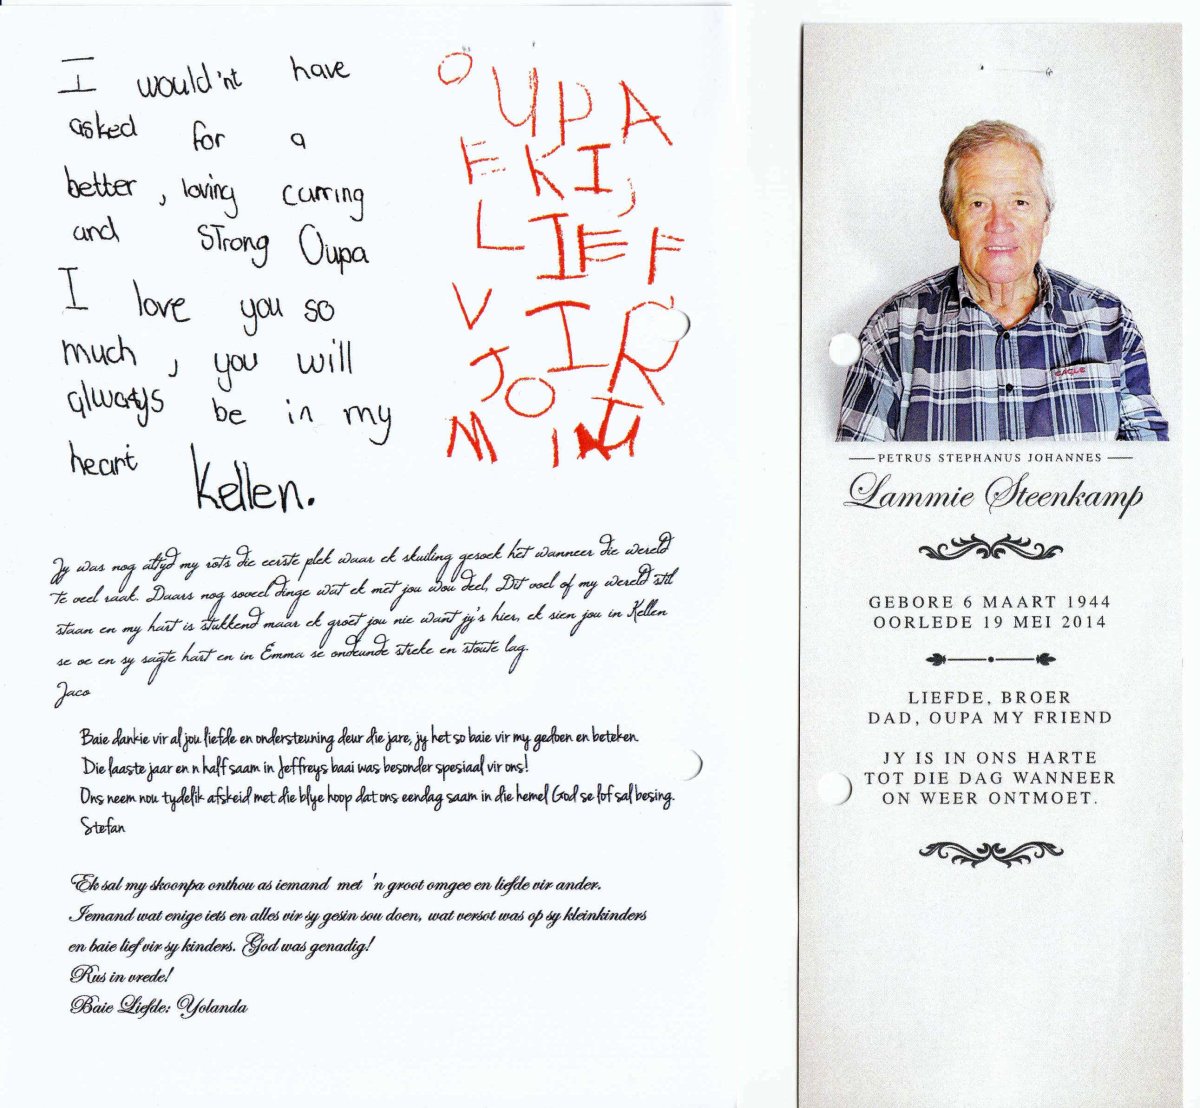 I would'nt have
asked for a
better, loving carring
and strong Oupa
I love you so
much, you will
always be in my
heart Kellen.
OUPA
EK I,
LIEF
VIR
Jy was nog altyd my rots die eerste plek waar ek skuiling gesoek het wanneer die wereld
te veel raak. Daars nog soveel dinge wat ek met jou wou deel, Dit voel of my wereld stil
staan en my hart is stukkend maar ek groet jou nie want jy's hier, ek sien jou in Kellen
se oe en sy sagte hart en in Emma se ondeunde streke en stoute lag.
Jaco
Baie dankie vir al jou liefde en ondersteuning deur die jare, jy het so baie vir my gedoen en beteken.
Die laaste jaar en n half saam in Jeffreys baai was besonder spesiaal vir ons!
Ons neem nou tydelik afskeid met die blye hoop dat ons eendag saam in die hemel God se lof sal besing.
Stefan
Ek sal my skoonpa onthou as iemand met 'n groot omgee en liefde vir ander.
Iemand wat enige iets en alles vir sy gesin sou doen, wat versot was op sy kleinkinders
en baie lief vir sy kinders. God was genadig!
Rus in vrede!
Baie Liefde: Yolanda
EAGLE
PETRUS STEPHANUS JOHANNES
Lammie Steenkamp
GEBORE 6 MAART 1944
OORLEDE 19 MEI 2014
LIEFDE, BROER
DAD, OUPA MY FRIEND
JY IS IN ONS HARTE
TOT DIE DAG WANNEER
ON WEER ONTMOET.